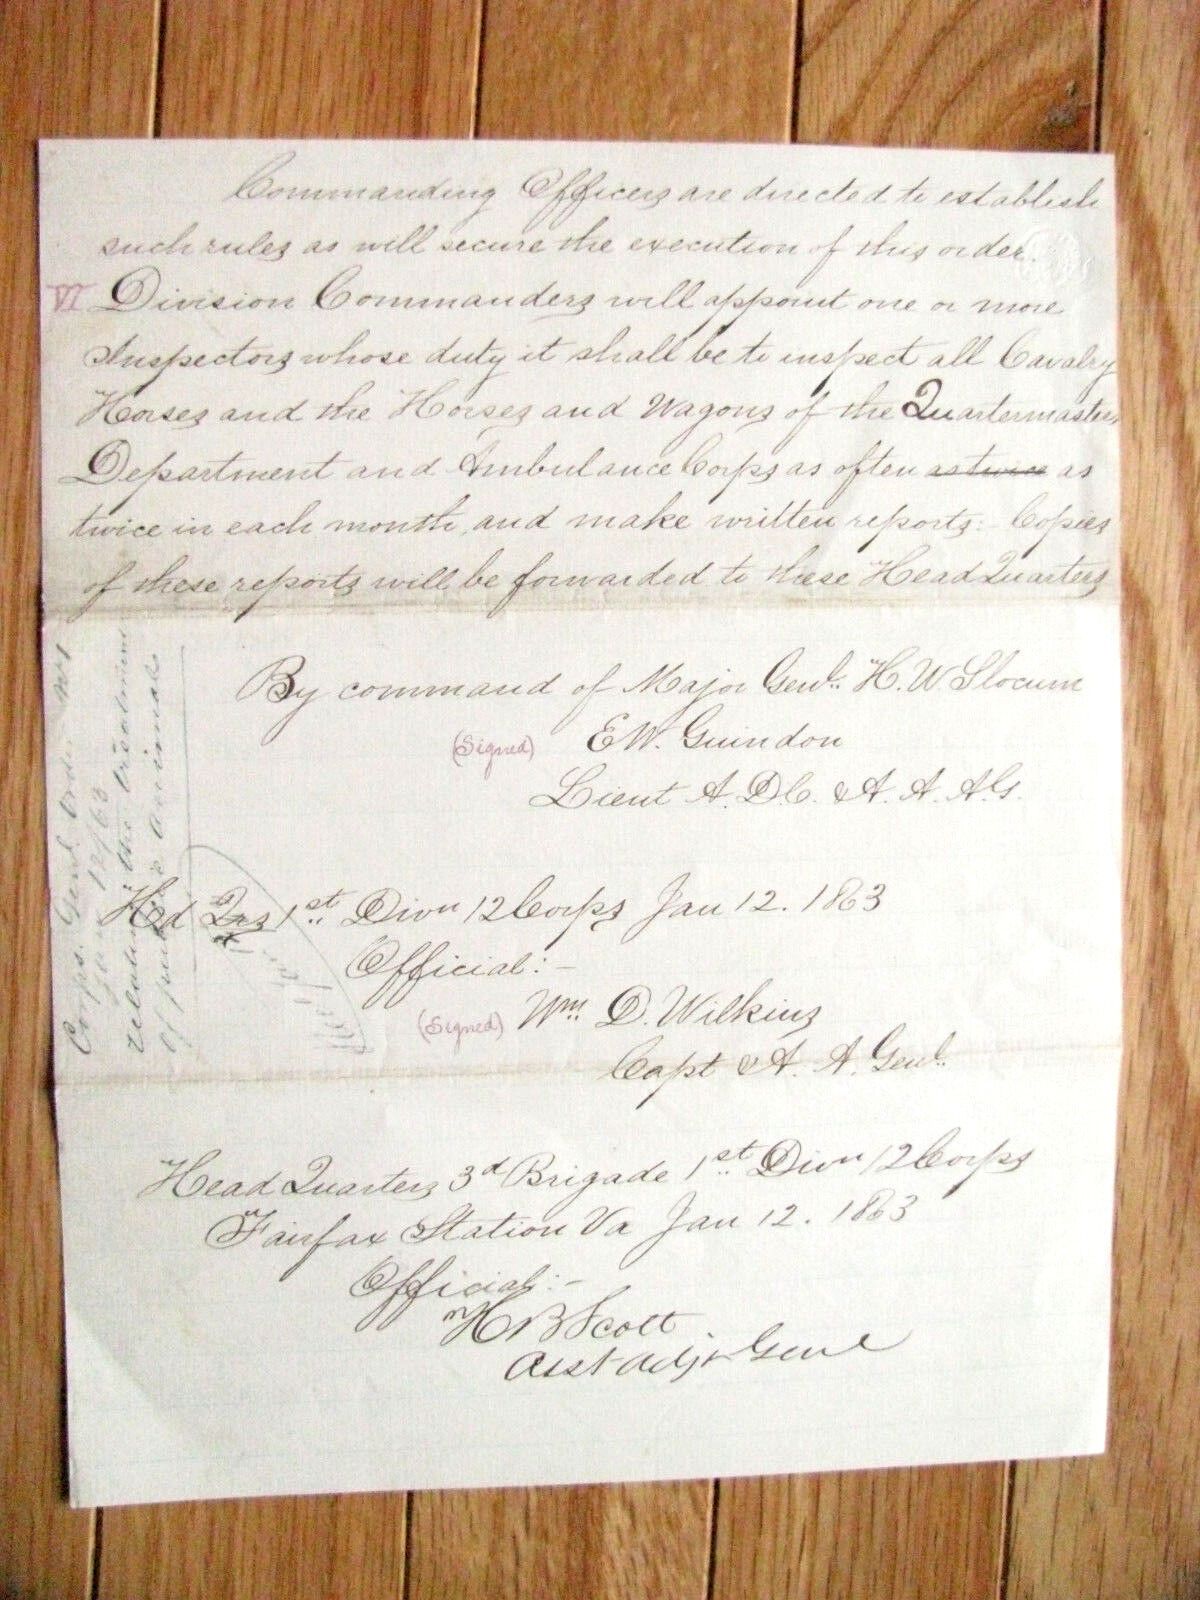 Commanding Officers are directed to establish
such rules as will secure the execution of this order.
VI Division Commanders will appoint one or more
Inspectors whose duty it shall be to inspect all Cavalry
Horses and the Horses and Wagons of the Quartermasters
Department and Ambulance Corps as often as twice as
twice in each month, and make written reports:- Copies
of these reports will be forwarded to these Head Quarters
By command of Major Genl. H. W. Slocum
(Signed) E W. Guindon
Lieut A. D C. & A. A. A. G.
Hd Qrs 1st Divn 12 Corps Jan 12. 1863
Official:-
(Signed) Wm. D. Wilkins
Capt & A. A. Genl.
Head Quarters 3d Brigade 1st Divn 12 Corps
Fairfax Station Va Jan 12. 1863
Official:-
H B Scott
Asst Adjt Genl
Corps. Genl. Order No 1
Jan 12/63
relating the treatment
of public animals